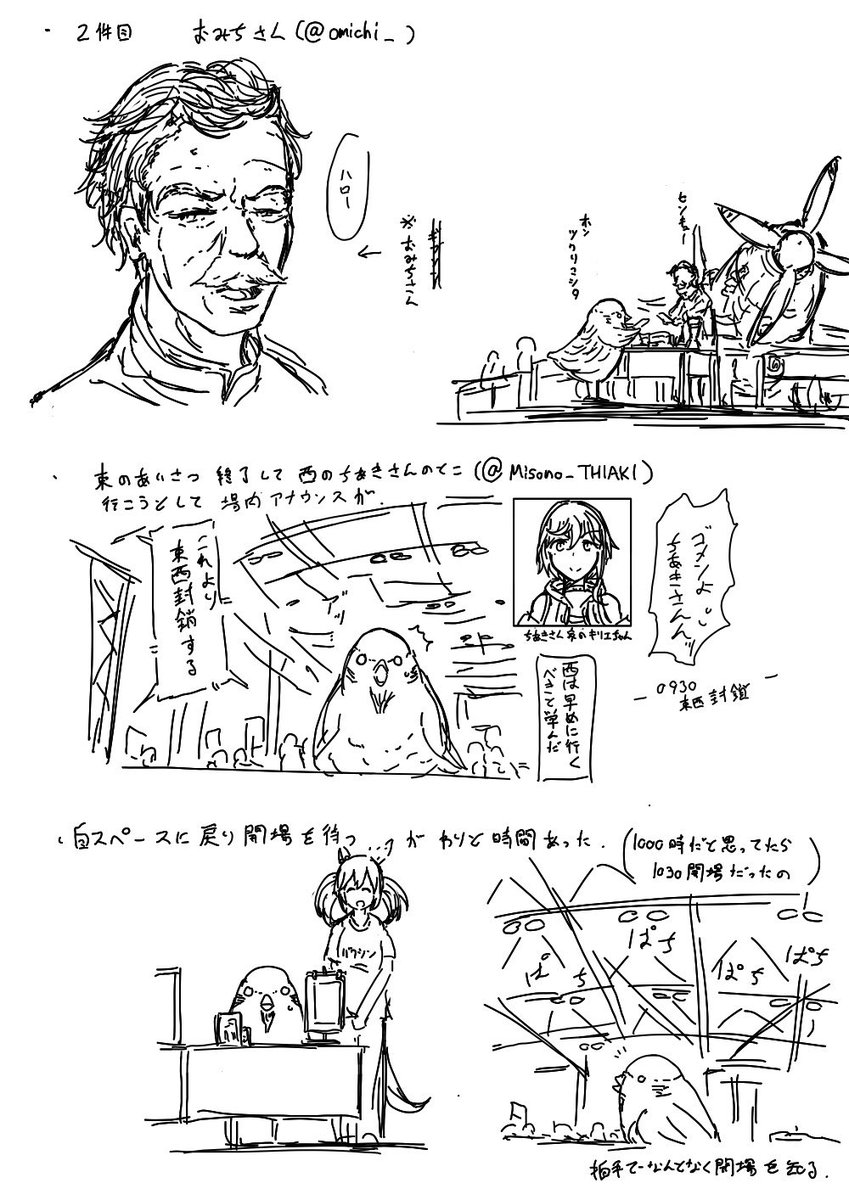 ・2件目 おみちさん(@omichi_)
ハロー
※おみちさん
センキュー
ホン
ツクリマシタ
・東のあいさつ 終了して 西のちあきさんのとこ(@Misono_THIAKI)
行こうとして 場内アナウンスが.
これより
東西封鎖する
ゴメンよ
ちあきさんんッ
ちあきさん家のキリエちゃん
西は早めに行く
べきこと学んだ
0930
東西封鎖
・自スペースに戻り開場を待つ が わりと時間あった.
(1000時だと思ってたら
1030開場だったの)
ワクシン
ぱち
ぱち
ぱち
ぱち
拍手でなんとなく開場を知る.